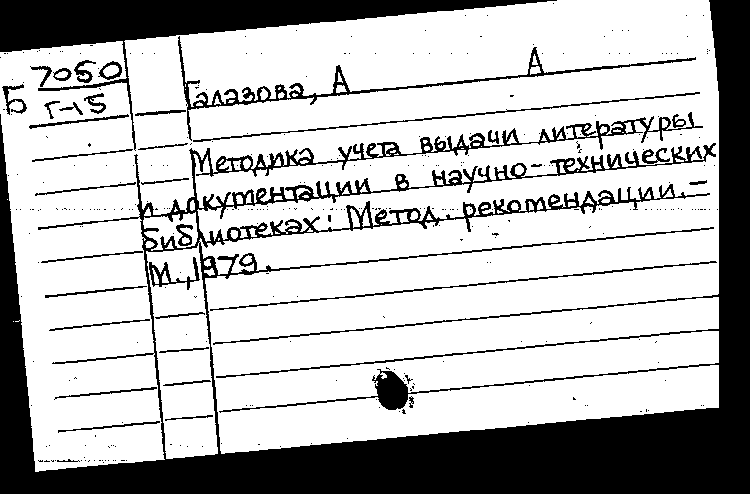 Б 7050
Г-15
Галазова, А А
Методика учета выдачи литературы
и документации в научно-технических
библиотеках: Метод. рекомендации. –
М., 1979.